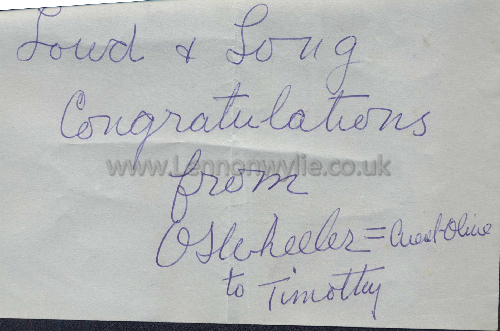 Loud & Long
Congratulations
www.Lennonwylie.co.uk
from
OSWheeler = Aunt Olive
to Timothy